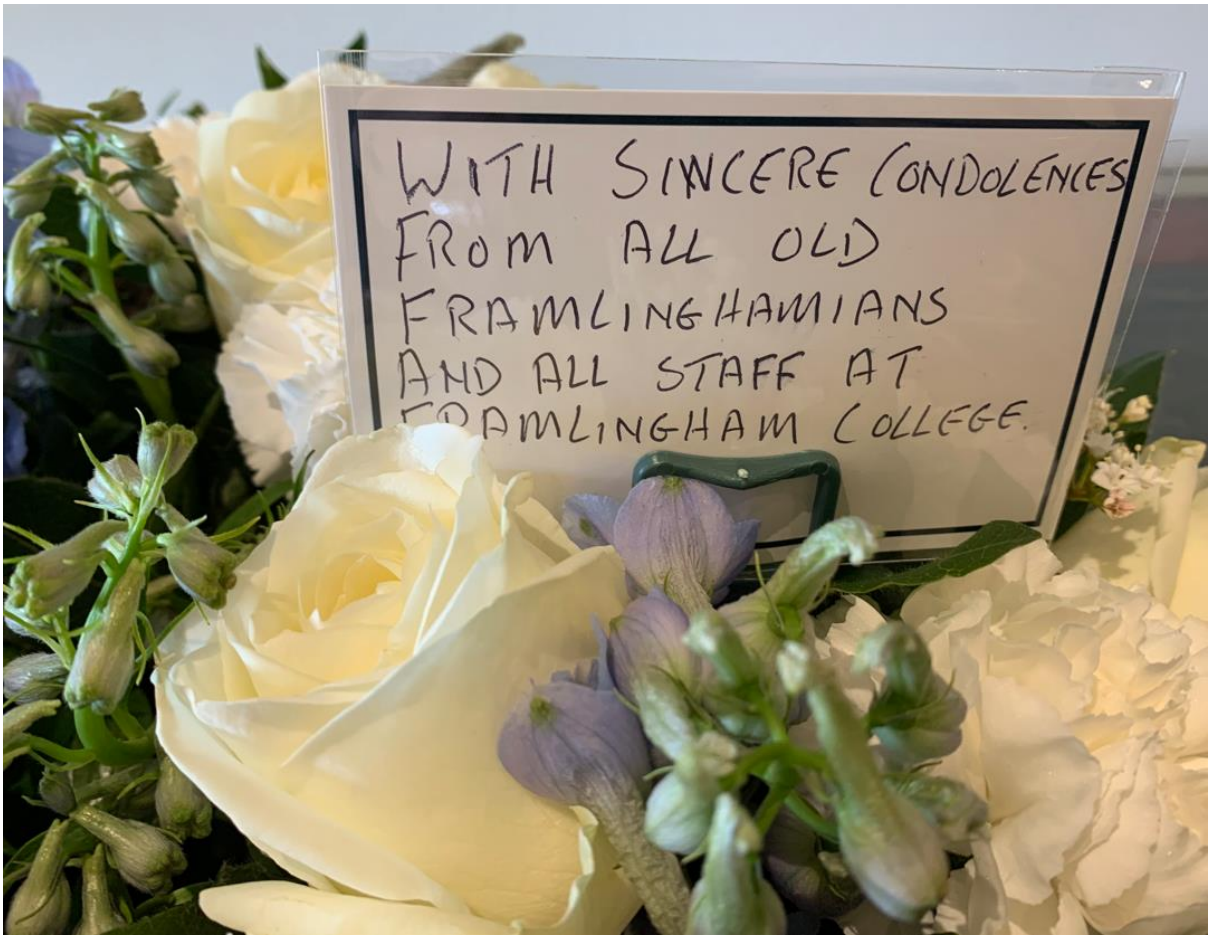 WITH SINCERE CONDOLENCES
FROM ALL OLD
FRAMLINGHAMIANS
AND ALL STAFF AT
FRAMLINGHAM COLLEGE.